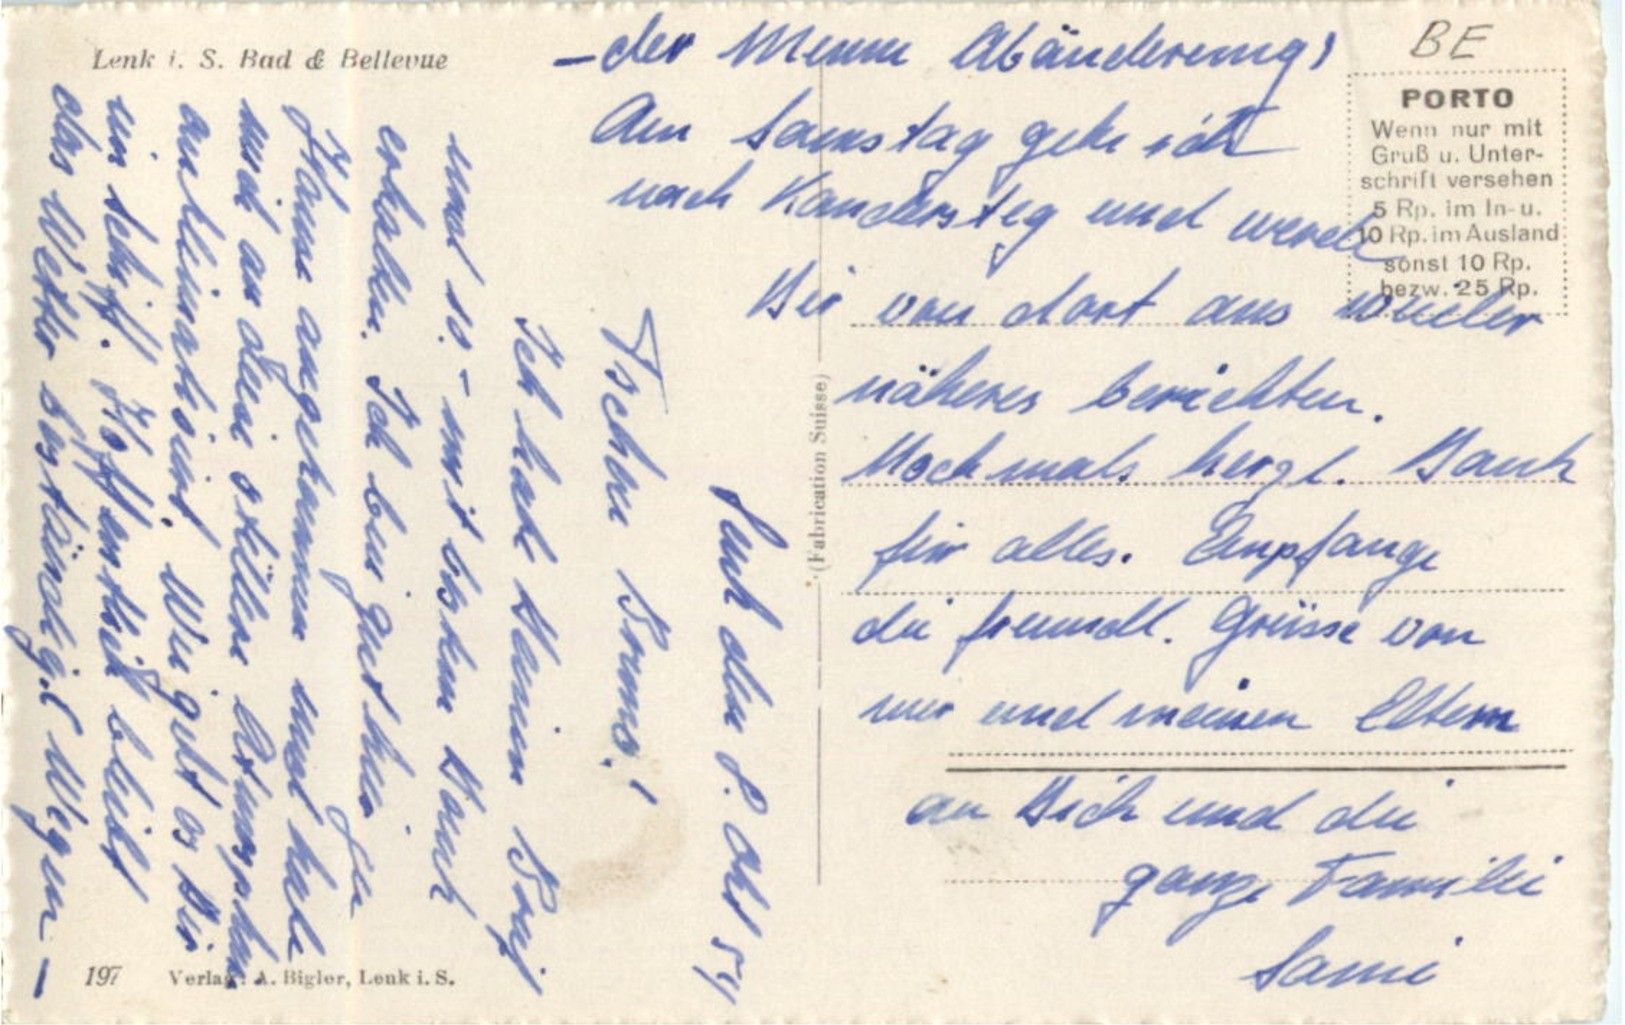 Lenk i. S. Bad & Bellevue
BE
PORTO
Wenn nur mit
Gruß u. Unter-
schrift versehen
5 Rp. im In- u.
10 Rp. im Ausland
sonst 10 Rp.
bezw. 25 Rp.
(Fabrication Suisse)
Lenk den 8. Okt 54
Tschau Bruno!
Ich habe Deinen Brief
und 10.- mit bestem Dank
erhalten. Ich bin gut hier
zu Hause angekommen und habe
mich an die stillere
. Wie geht es Dir
im Schiff. Hoffentlich bleibt
das Wetter beständig. Wegen -
- der Abänderung,
Am Samstag gehe ich
nach Kandersteg und werde
Dir von dort aus wieder
näheres berichten.
Nochmals herzl. Dank
für alles. Empfange
die freundl. Grüsse von
mir und meinen Eltern
an Dich und die
ganze Familie
Sami
197 Verlag: A. Bigler, Lenk i. S.